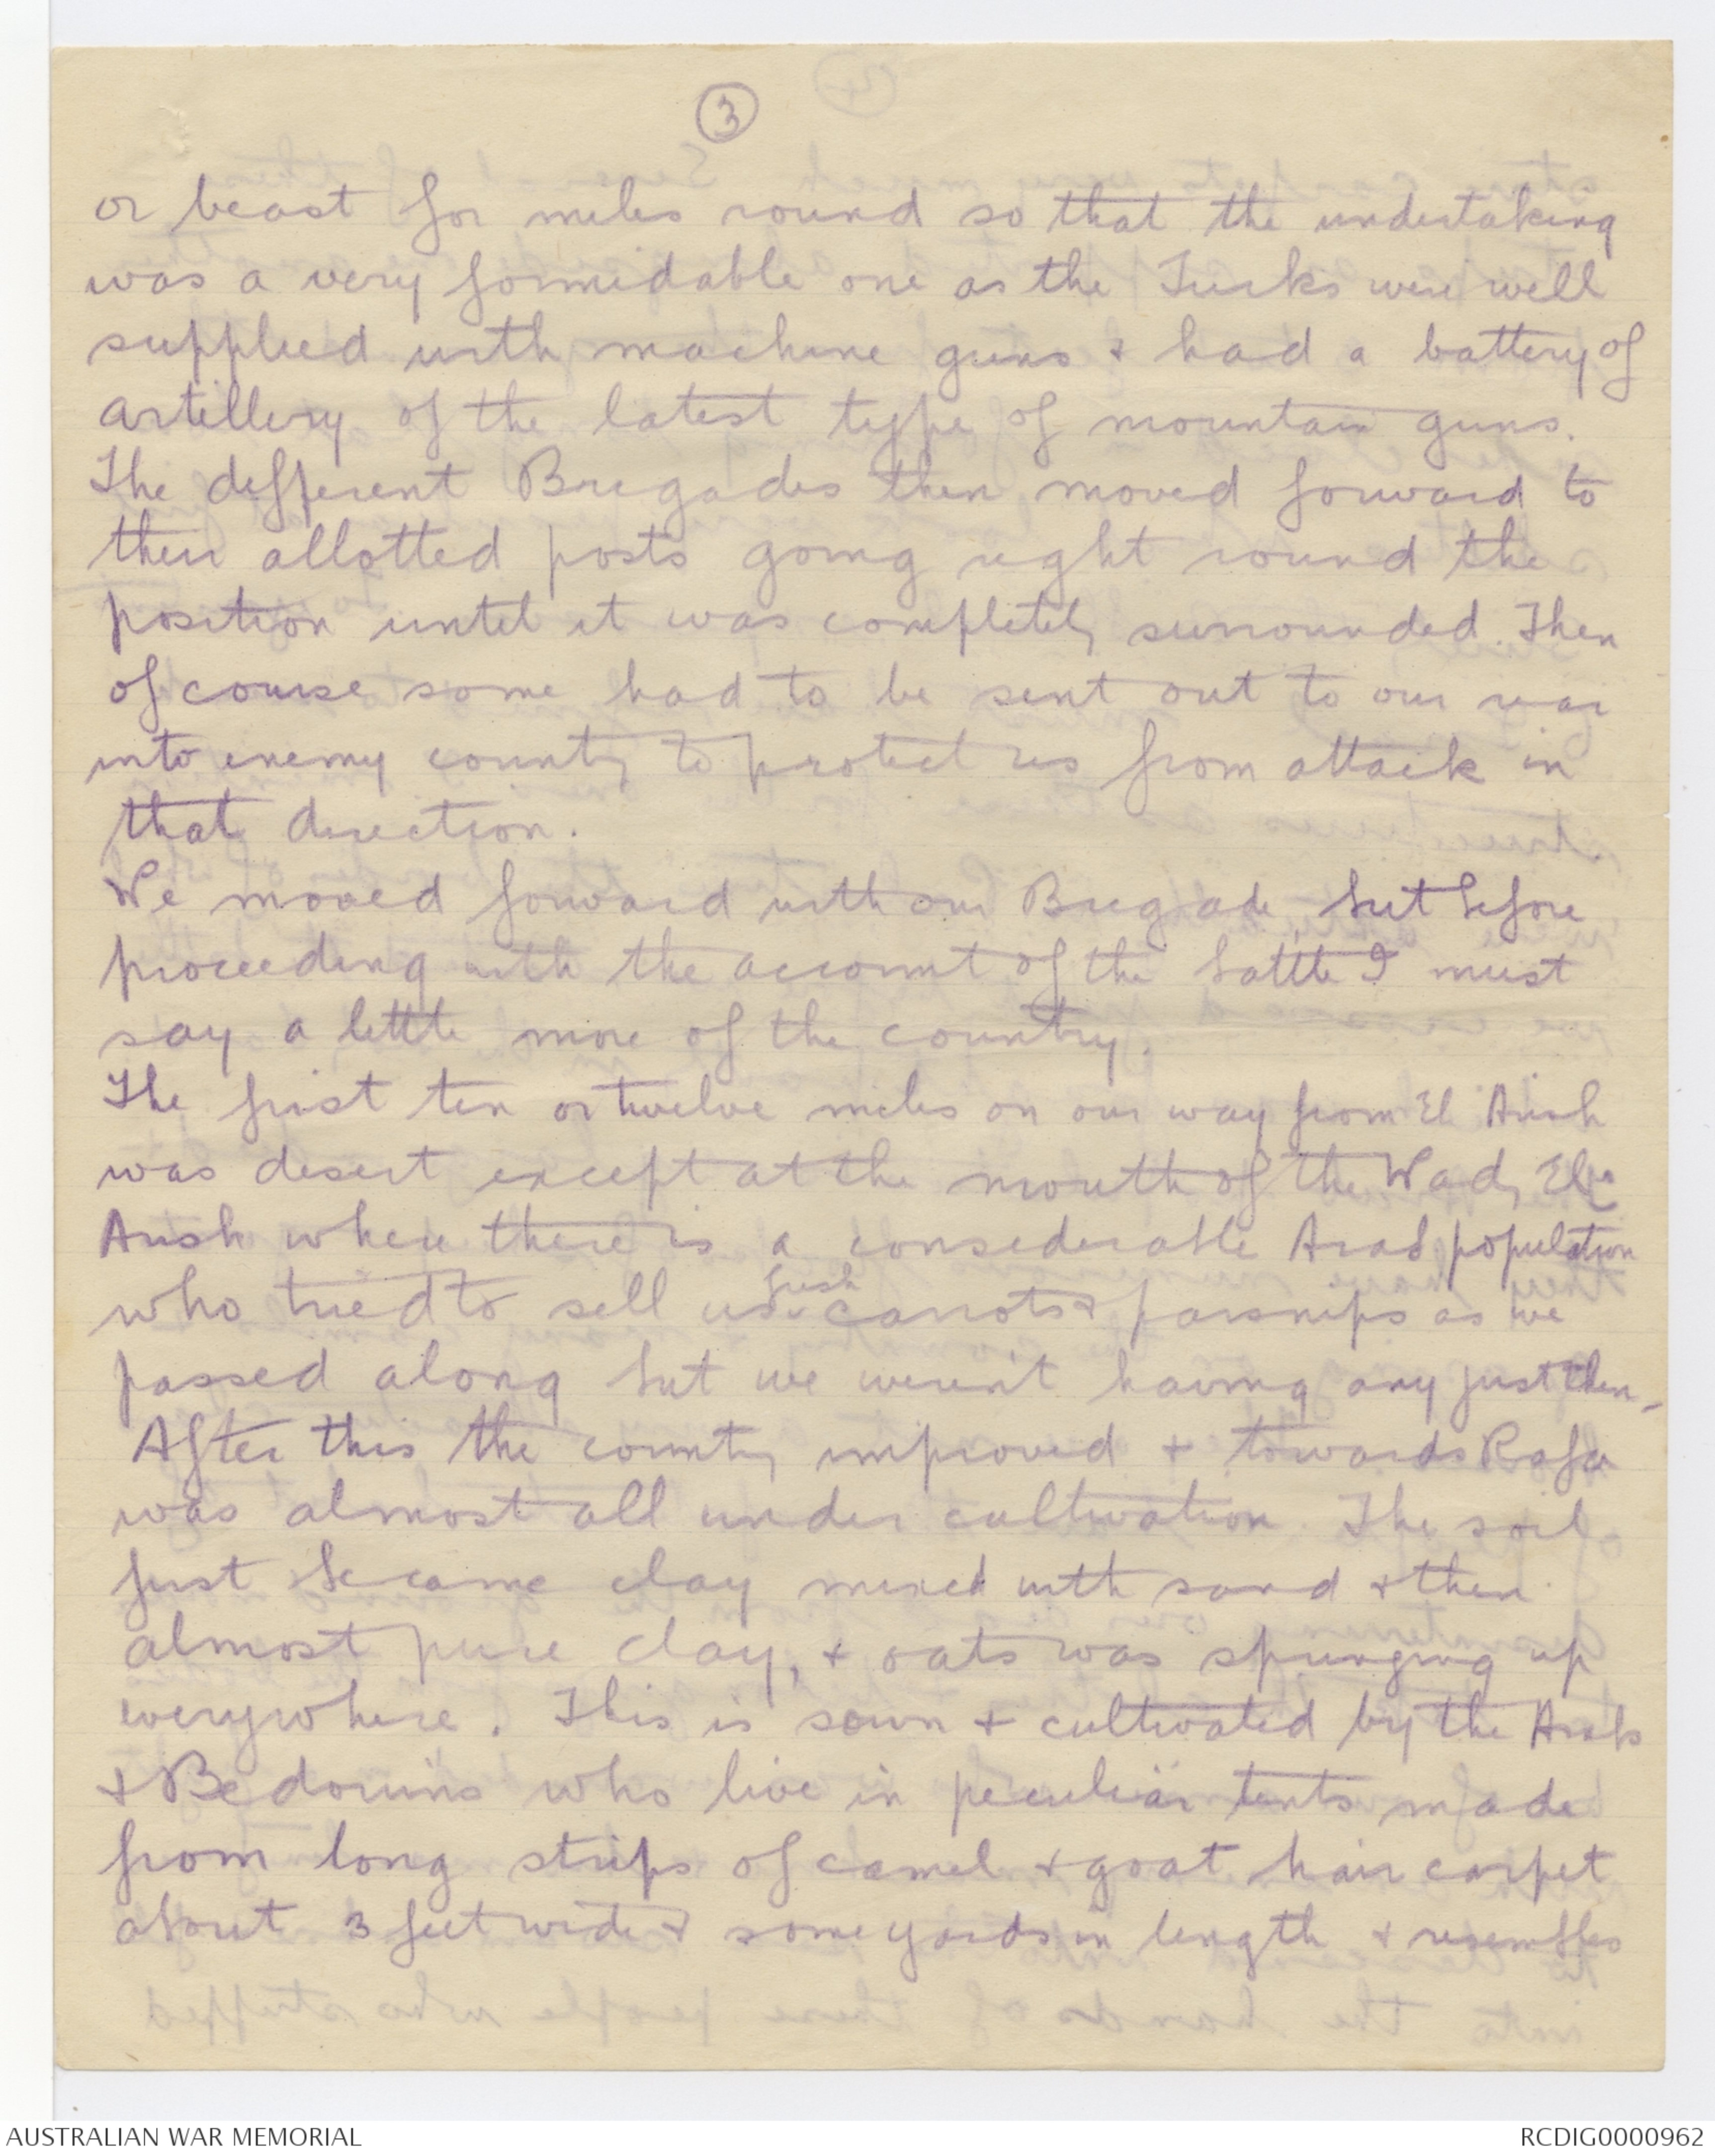 3
or beast for miles round so that the undertaking
was a very formidable one as the Turks were well
supplied with machine guns + had a battery of
artillery of the latest type of mountain guns.
The different Brigades then moved forward to
their allotted posts going right round the
position until it was completely surrounded. Then
of course some had to be sent out to our rear
into enemy country to protect us from attack in
that direction.
We moved forward with our Brigade but before
proceeding with the account of the battle I must
say a little more of the country.
The first ten or twelve miles on our way from El Arish
was desert except at the mouth of the Wady El
Arish where there is a considerable Arab population
who tried to sell us fresh carrots + parsnips as we
passed along but we weren't having any just then.
After this the country improved + towards Rafa
was almost all under cultivation. The soil
first became clay mixed with sand + then
almost pure clay, + oats was springing up
everywhere. This is sown + cultivated by the Arabs
+ Bedouins who live in peculiar tents made
from long strips of camel + goat hair carpet
about 3 feet wide + some yards in length + resembles
AUSTRALIAN WAR MEMORIAL
RCDIG0000962